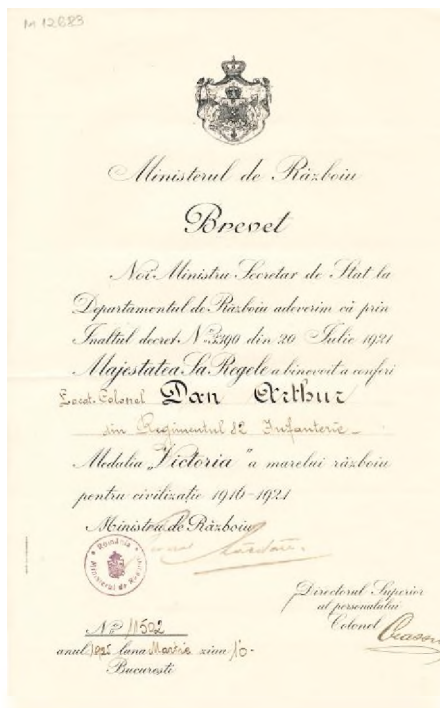 In 12683
Ministerul de Războiu
Brevet
Noi Ministru Secretar de Stat la
Departamentul de Războiu adeverim că prin
Inaltul decret No. 3390 din 20 Iulie 1921
Majestatea Sa Regele a binevoit a conferi
Locot. Colonel Dan Arthur
din Regimentul 82 Infanterie
Medalia „Victoria" a marelui războiu
pentru civilizație 1916-1921
Ministru de Războiu
România
Ministerul de
Directorul Superior
al personalului
Colonel
No. 11502
anul luna Martie ziua
București